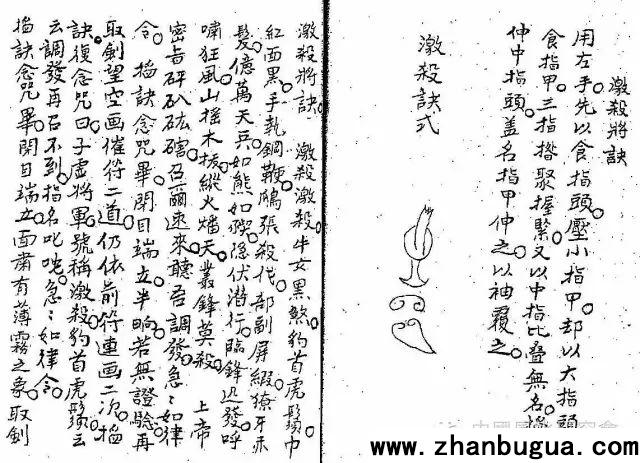 激殺將訣
用左手先以食指頭壓小指甲却以大指頭
食指甲三指撘聚握緊又以中指比叠無名
仲中指頭盖名指甲仲之以袖覆之
激殺訣式
激殺將訣 激殺激殺牛女黑煞豹首虎鬚巾
紅面黑手執鋼鞭鴟張殺伐部副屏綴獠牙赤
髮億萬天兵如熊如隱伏潛行臨鋒迅發呼
嘯狂風山摇木拔縱火燔天叢鋒莫殺 上帝
密旨砰砅砿磍召爾速來聽吾調發急〻如律
令 搯訣念咒畢閉目端立半晌若無證騐再
取劍望空画催符二道仍依前符連画二次搯
訣復念咒曰子虚將軍號稱激殺豹首虎鬚云
云調發再召不到指名叱咤急〻如律令
搯訣念咒畢閉目端立面肅有薄霧之象取劍
www.zhanbugua.com